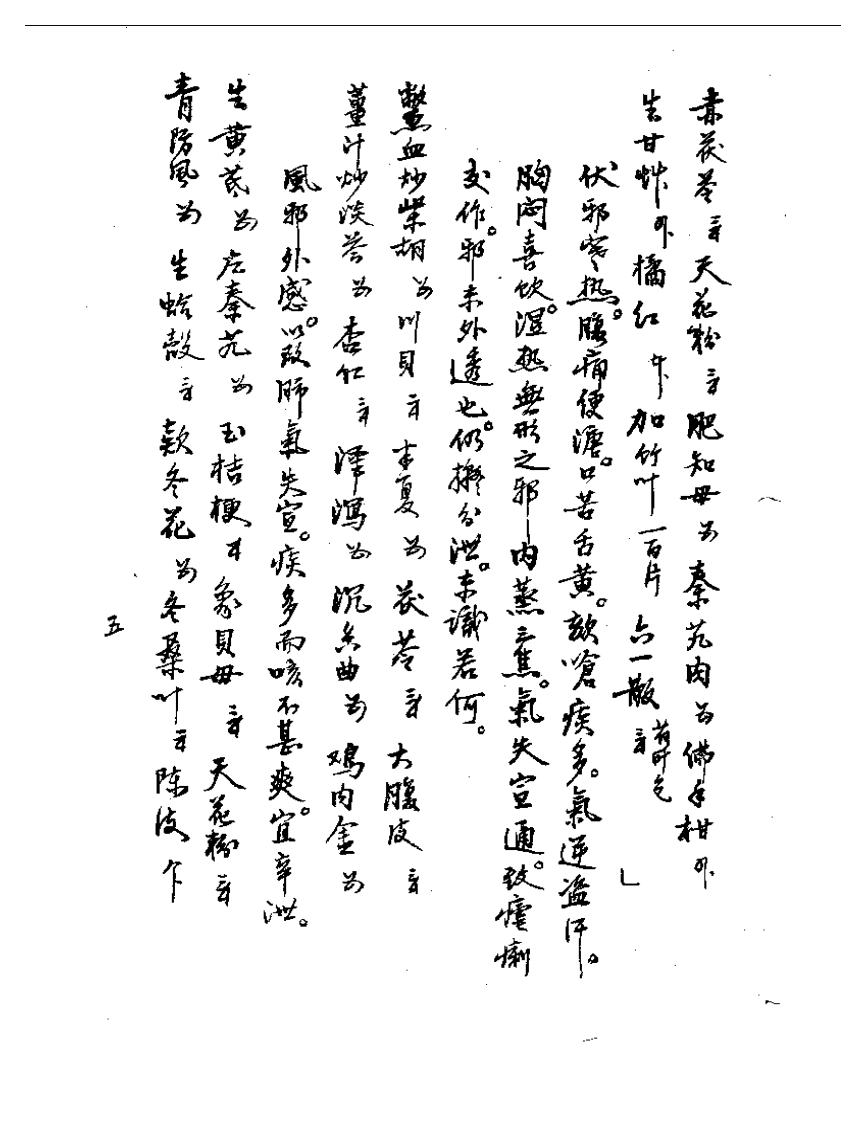 赤茯苓 天花粉 肥知母 秦艽肉 佛手柑
生甘草 橘红 加竹叶一百片 六一散 荷叶包
伏邪寒热。腹痛便溏。口苦舌黄。咳呛痰多。氣逆盗汗。
胸闷喜饮。湿热無形之邪内蒸三焦。氣失宣通。致瘧痢
交作。邪未外透也。仍擬分泄。未識若何。
鱉血炒柴胡 川貝 半夏 茯苓 大腹皮
薑汁炒淡芩 杏仁 泽瀉 沉香曲 鸡内金
風邪外感。以致肺氣失宣。痰多而咳不甚爽。宜辛泄。
生黄芪 左秦艽 玉桔梗 象貝母 天花粉
青防風 生蛤殼 款冬花 冬桑叶 陈皮
五